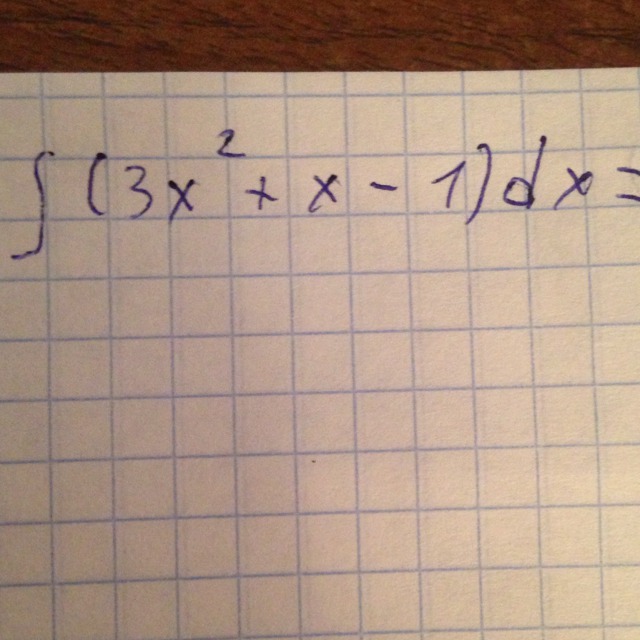 ∫ (3x² + x - 1) dx =